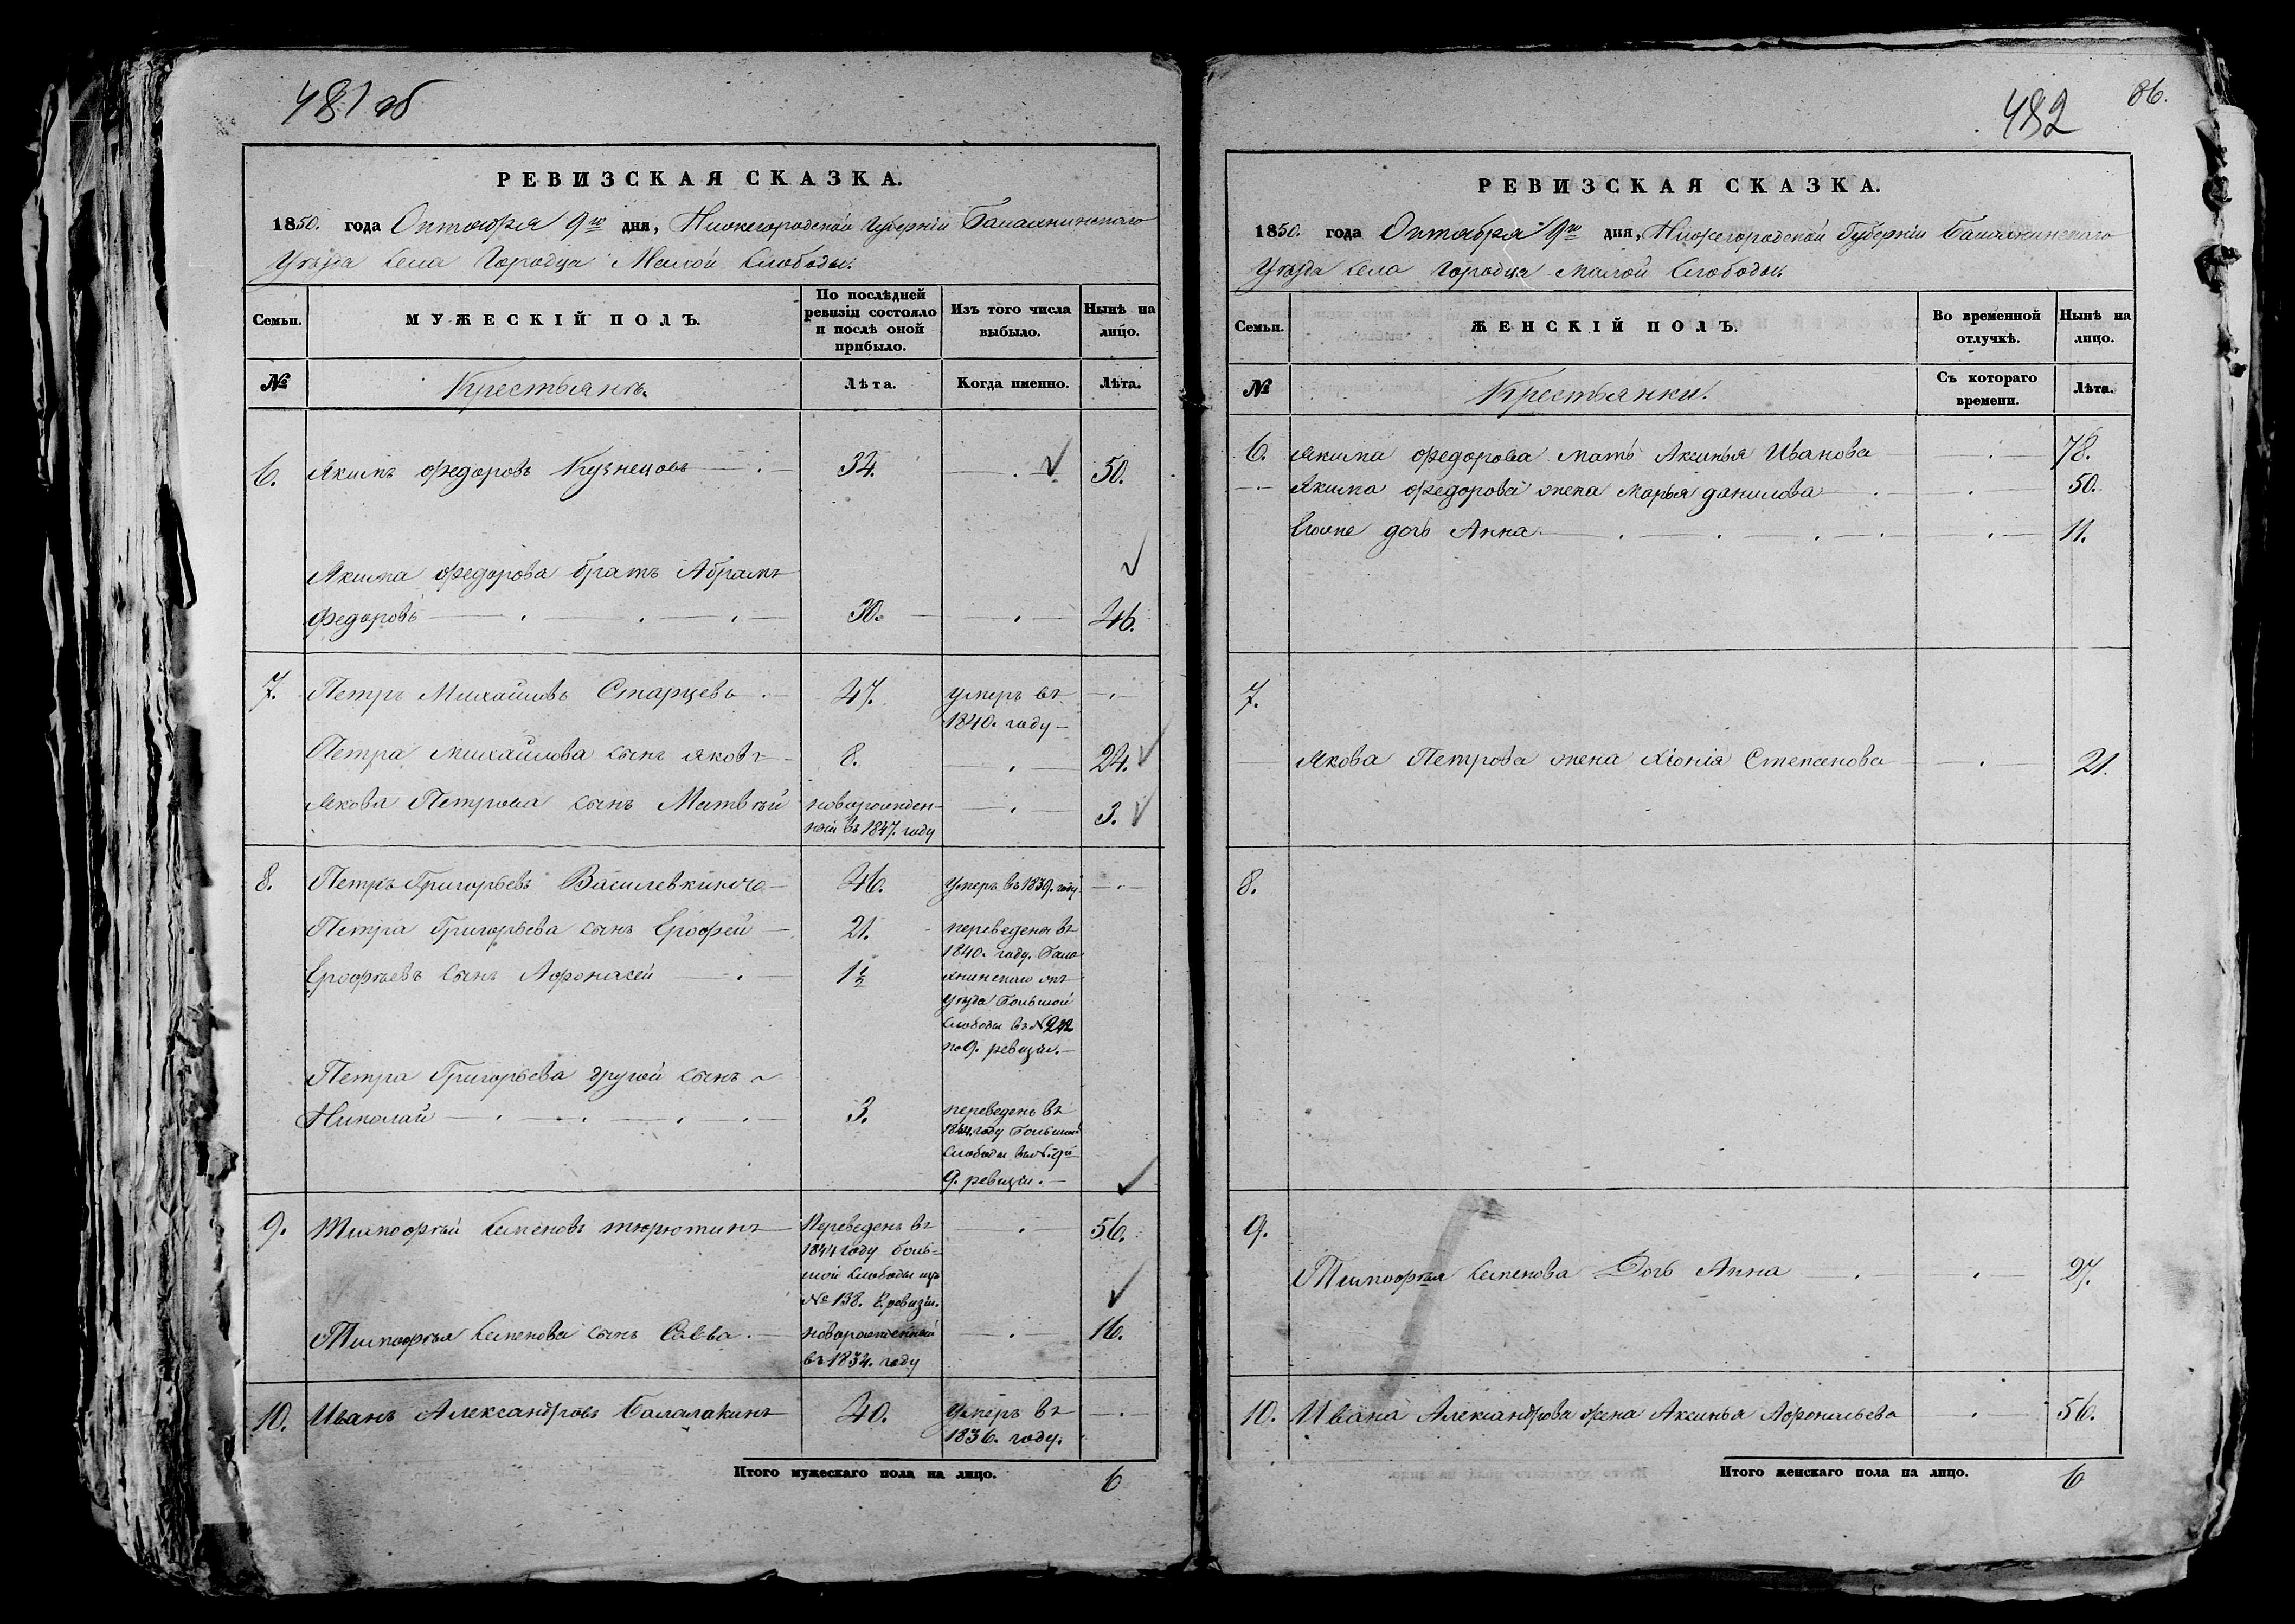 481 об
РЕВИЗСКАЯ СКАЗКА.
1850. года Октября 9го дня, Нижегородской Губерніи Балахнинскаго
Уѣзда Села Городца Малой Слободы.
Семьи.
МУЖЕСКІЙ ПОЛЪ.
По послѣдней ревизіи состояло и послѣ оной прибыло.
Изъ того числа выбыло.
Нынѣ на лицо.
№
Крестьянъ.
Лѣта.
Когда именно.
Лѣта.
6. Якимъ Федоровъ Кузнецовъ 34. 50.
Якима Федорова братъ Абрамъ
Федоровъ 30. 46.
7. Петръ Михайловъ Старцевъ 47. умеръ въ
1840. году
Петра Михайлова сынъ Яковъ 8. 24.
Якова Петрова сынъ Матвѣй новорожден- 3.
ный въ 1847. году
8. Петръ Григорьевъ 46. умеръ въ 1839. году
Петра Григорьева сынъ Ерофей 21. переведенъ въ
1840. году. Бала
Ерофѣевъ сынъ Афонасей 1½ хнинскаго
уѣзда Большой
Слободы въ № 222
по 9. ревизіи.
Петра Григорьева другой сынъ
Николай 3. переведенъ въ
1844. году Большой
Слободы
9. ревизіи.
9. Тимофѣй Семеновъ Тюрютинъ Переведенъ въ 56.
1844 году боль-
шой Слободы изъ
№ 138. 8. ревизіи.
Тимофѣя Семенова сынъ Савва новорожденный 16.
въ 1834. году
10. Иванъ Александровъ Балалакинъ 40. Умеръ въ
1836. году.
Итого мужескаго пола на лицо. 6
86.
482
РЕВИЗСКАЯ СКАЗКА.
1850. года Октября 9го дня, Нижегородской Губерніи Балахнинскаго
Уѣзда Села Городца Малой Слободы.
Семьи.
ЖЕНСКІЙ ПОЛЪ.
Во временной отлучкѣ.
Нынѣ на лицо.
№
Крестьянки.
Съ котораго времени.
Лѣта.
6. Якима Федорова мать Аксинья Иванова 78.
Якима Федорова жена Марья Данилова 50.
Егоже дочь Анна 11.
7.
Якова Петрова жена Хіонія Степанова 21.
8.
9.
Тимофѣя Семенова Дочь Анна 27.
10. Ивана Александрова жена Аксинья Афонасьева 56.
Итого женскаго пола на лицо. 6